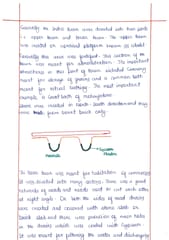 Generally the Indus town was divided into two parts
i.e upper town and lower town. The upper town
was located on upraised platform known as citadel
Generally this area was fortified. This section of the
town was meant for administration. The important
structures in this part of town included Granary
meant for storage of grains and a common bath
meant for ritual bathing. The most important
example is great bath of mohenjodaro
was created in North-South direction and may
from burnt brick only
Manhole
The lower town was meant for habitation of commoners
It was divided into many sectors. There was a good
network of roads and roads used to cut each other
at right angle. On both the sides of road drains
were created and covered with stone slab or
brick slab and there was provision of man holes
in the drains which was coated with Gypsum.
It was meant for filtering the water and discharging